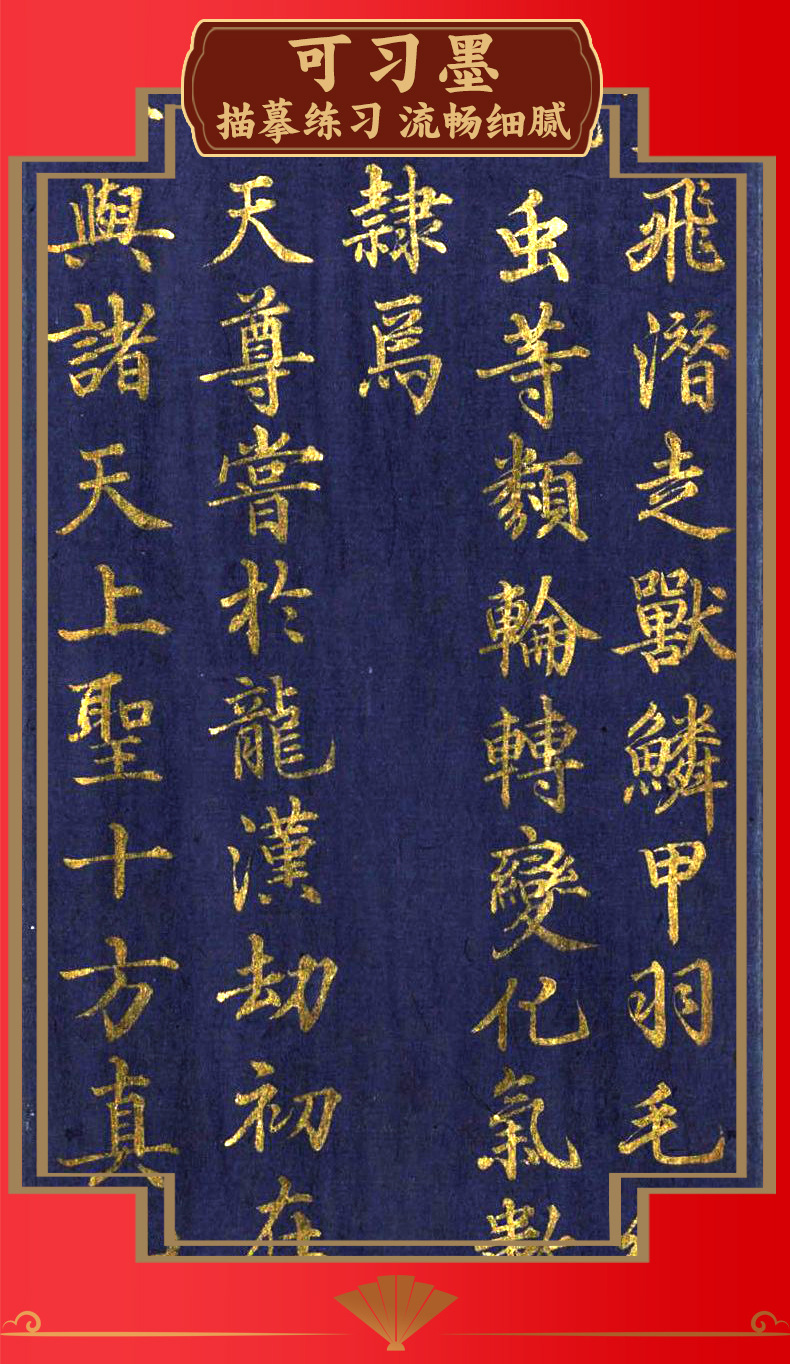 可习墨
描摹练习 流畅细腻
飛潛走獸鱗甲羽毛
虫等類輪轉變化氣數
隸焉
天尊嘗於龍漢劫初在
與諸天上聖十方真